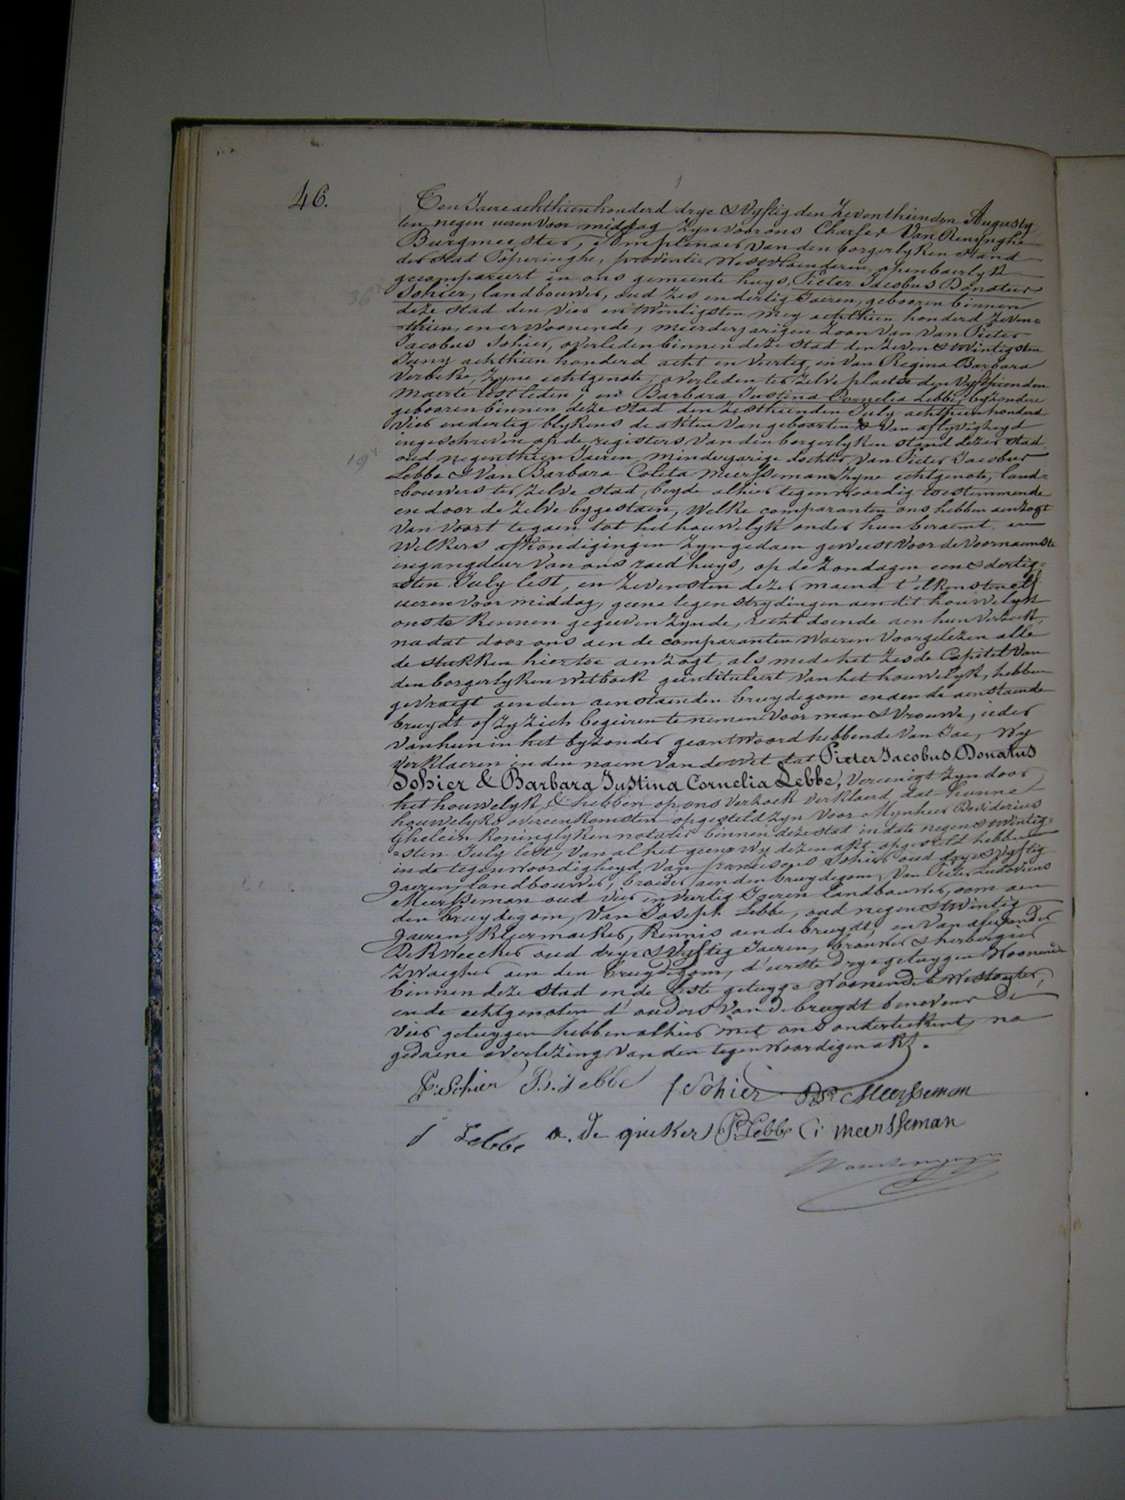 46.
Ten Jaere achthien honderd drye & Vyftig den Zeventhienden Augusty
ten negen ueren voor middag Zyn voor ons Charles Van Renynghe
Burgmeester, van den borgerlyken stand
der stad Poperinghe, provintie Westvlaenderen, openbaerlyk
gecompareert in ons gemeente huys, Pieter Jacobus Donatus
36
Sohier, landbouwer, oud zes en dertig Jaeren, gebooren binnen
deze Stad den vier en twintigsten mey achthien honderd zeven-
thien, en er woonende, meerderjarigen zoon van Pieter
Jacobus Sohier, overleden binnen deze stad den zeven & twintigsten
Juny achthien honderd acht en veertig, en van Regina Barbara
Verbeke, zyne echtgenote, overleden ter zelve plaetse den vyfthienden
maerte lestleden; en Barbara Justina Cornelia Lebbe, byzondere
gebooren binnen deze stad den zesthienden July achthien honderd
vier en dertig blykens de akten van geboorten & van aflyvigheyd
ingeschreven op de registers van den borgerlyken stand dezer stad
19
oud negenthien Jaeren, minderjarige dochter van Pieter Jacobus
Lebbe & van Barbara Coleta Meersseman zyne echtgenote, land-
bouwers ter zelve stad, beyde alhier tegenwoordig toestemmende
en door de zelve bygestaen, welke comparanten ons hebben aenzogt
van voort te gaen tot het houwelyk onder hun beraemt, en
welkers afkondigingen zyn gedaen geweest voor de voornaemste
ingangdeur van ons raedhuys, op de zondagen een & dertig-
sten July lest, en zevensten dezer maend t'elkens ten elf
ueren voor middag, geene tegenstrydingen aen dit houwelyk
ons te kennen gegeven zynde, recht doende aen hun verzoek,
na dat door ons aen de comparanten waeren voorgelezen alle
de stukken hier toe aenzogt, als mede het zesde Capitel van
den borgerlyken wetboek geintituleert van het houwelyk, hebben
gevraegt aen den aenstaenden bruydegom en aen de aenstaende
bruydt of zy zich begeiren te nemen voor man & vrouwe, ieder
van hun in het byzonder geantwoord hebbende van Jae, wy
verklaeren in den naem van de wet dat Pieter Jacobus Donatus
Sohier & Barbara Justina Cornelia Lebbe, vereenigt zyn door
het houwelyk, & hebben op ons verzoek verklaerd, dat hunne
houwelyks overeenkomsten opgesteld zyn voor Mynheer Desiderius
Ghelein koninglyken notaris binnen deze stad in date negen & twintig-
sten July lest, van al het geene wy dezen akt opgesteld hebben
in de tegenwoordigheyd van franciscus Sohier oud drye & vyftig
Jaeren, landbouwer, broeder aen den bruydegom, van Pieter Ludovicus
Meersseman oud vier en veertig Jaeren landbouwer, oom aen
den bruydegom, van Joseph Lebbe, oud negen & twintig
Jaeren, kleermaeker, kennis aen de bruydt, en van alexander
De Kweeker oud drye & vyftig Jaeren, brouwer & herbergier
zwaegher aen den bruydegom, d'eerste drye getuygen woonende
binnen deze stad en de leste getuyge woonende te Westouter,
en de echtgenoten d'ouders van de bruydt benevens de
vier getuygen hebben alhier met ons onderteekent, na
gedaene overlezing van den tegenwoordigen akt.
P: Sohier B. Lebbe f Sohier P L Meersseman
J Lebbe a. De queker P: Lebbe C: meersseman